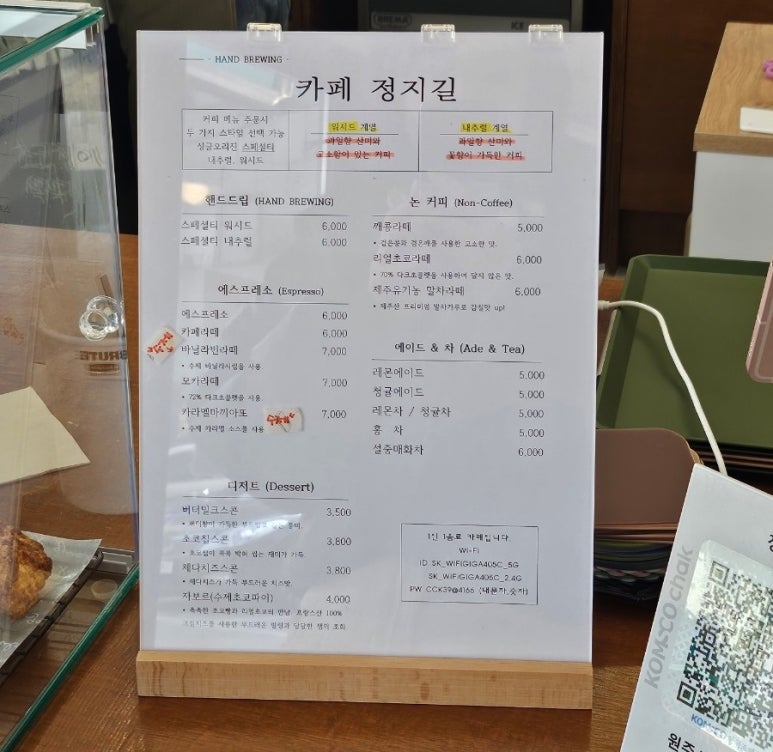 HAND BREWING
카페 정지길
커피 메뉴 주문시
두 가지 스타일 선택 가능
싱글오리진 스페셜티
내추럴, 워시드
워시드 계열
과일향 산미와
고소함이 있는 커피
내추럴 계열
과일향 산미와
꽃향이 가득한 커피
핸드드립 (HAND BREWING)
스페셜티 워시드 6,000
스페셜티 내추럴 6,000
에스프레소 (Espresso)
에스프레소 6,000
카페라떼 6,000
바닐라빈라떼 7,000
• 수제 바닐라시럽을 사용
모카라떼 7,000
• 72% 다크초콜랫을 사용
카라멜마끼아또 7,000
• 수제 카라멜 소스를 사용
디저트 (Dessert)
버터밀크스콘 3,500
• 버터향이 가득한 부드럽고 풍미.
초코칩스콘 3,800
• 초코칩이 콕콕 박혀 씹는 재미가 가득.
체다치즈스콘 3,800
• 체다치즈가 가득 부드러운 치즈맛.
자보르(수제초코파이) 4,000
• 촉촉한 초코빵과 리얼초코의 만남. 프랑스산 100%
크림치즈를 사용한 부드러운 필링과 달달한 잼의 조화
논 커피 (Non-Coffee)
깨콩라떼 5,000
• 검은콩과 검은깨를 사용한 고소한 맛.
리얼초코라떼 6,000
• 70% 다크초콜랫을 사용하여 달지 않은 맛.
제주유기농 말차라떼 6,000
• 제주산 프리미엄 말차가루로 감칠맛 up!
에이드 & 차 (Ade & Tea)
레몬에이드 5,000
청귤에이드 5,000
레몬차 / 청귤차 5,000
홍 차 5,000
설중매화차 6,000
1인 1음료 카페입니다.
Wi-Fi
ID SK_WiFiGIGA405C_5G
SK_WiFiGIGA405C_2.4G
PW CCK39@4166 (대문자,숫자)
BREMA
BRUTE
KOMSCO chak
KOMSCO